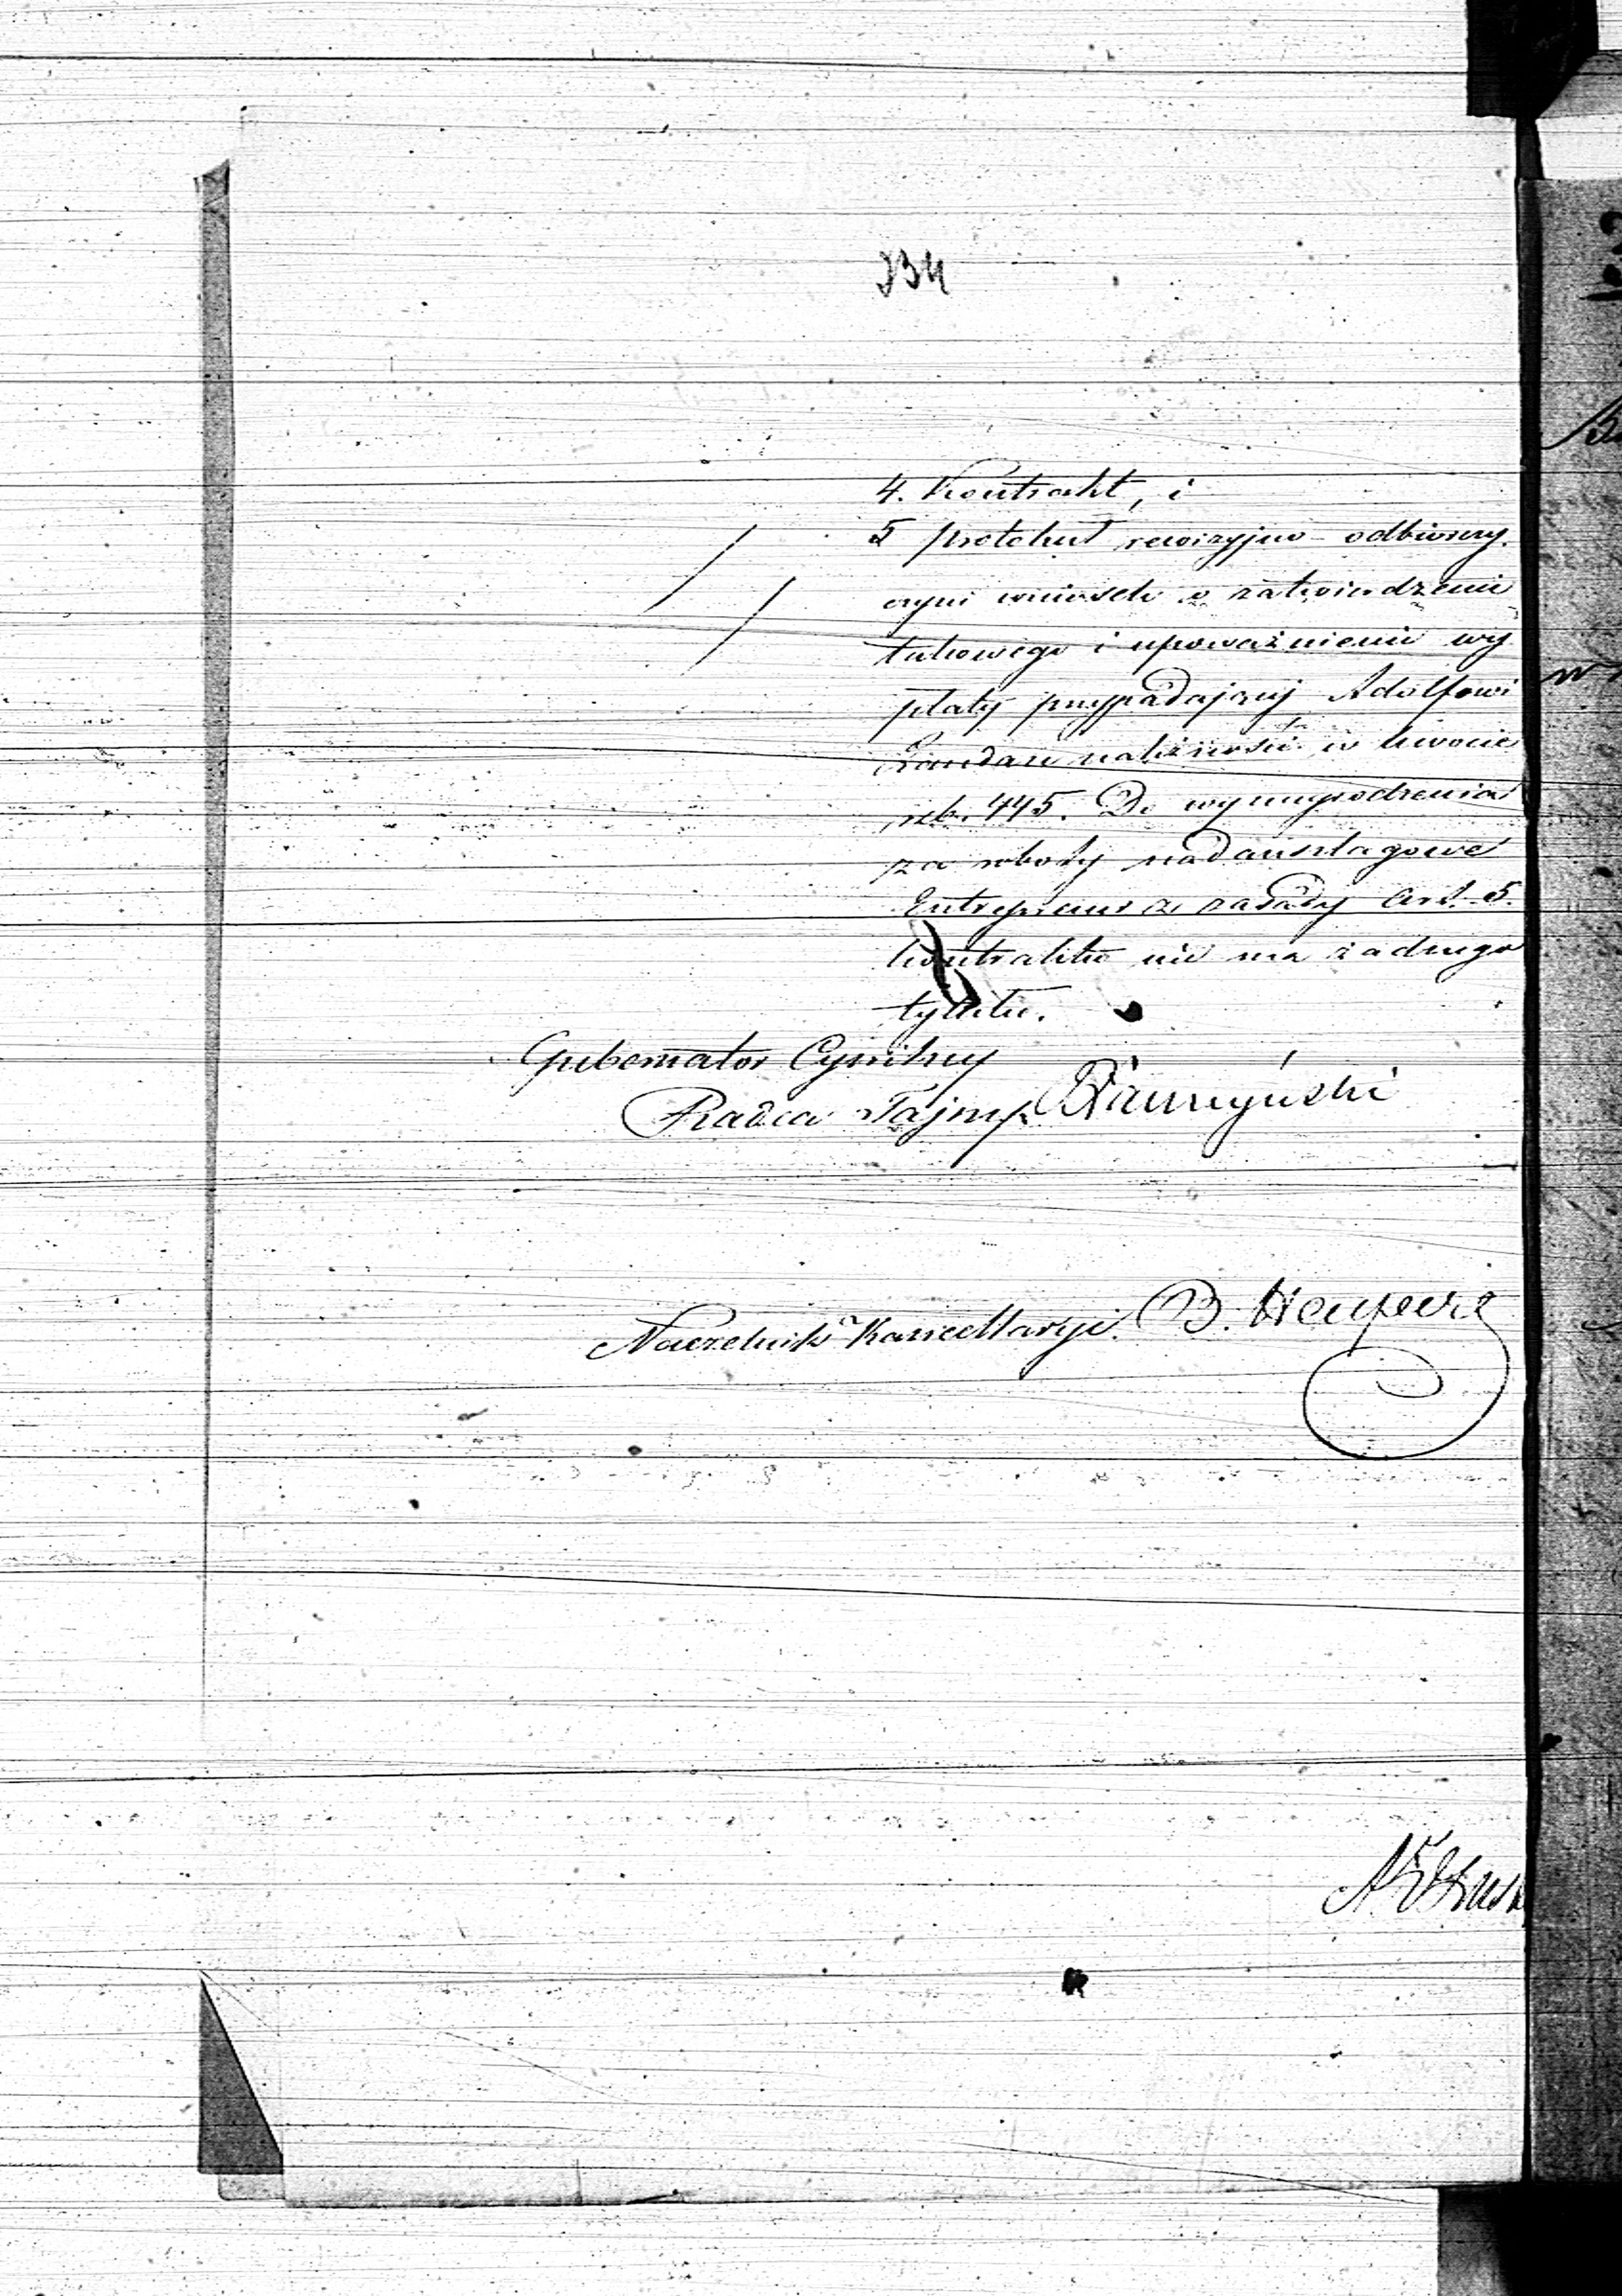 234
4. Kontrakt, i
5 protokuł rewizyjno odbiorczy.
czyni wniosek o zatwierdzenie
takowego i upoważnienie wy
płaty przypadającej Adolfowi
należności w kwocie
rub. 445. Do wynagrodzenia
za roboty nadanszlagowe
Entreprener z zasady Art. 5.
kontraktu nie ma żadnego
tytułu.
Gubernator Cywilny
Radca Tajny
Naczelnik Kancellaryi. B.